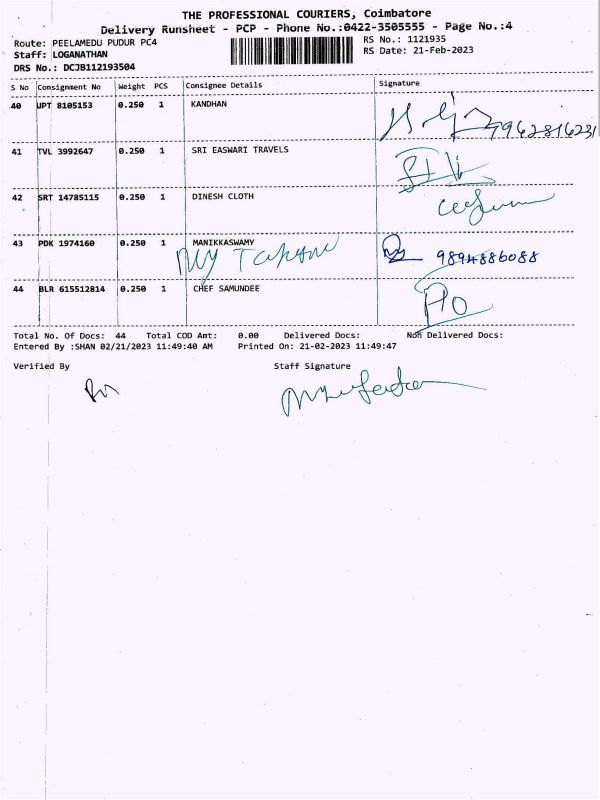 THE PROFESSIONAL COURIERS, Coimbatore
Delivery Runsheet - PCP - Phone No.:0422-3505555 - Page No.:4
Route: PEELAMEDU PUDUR PC4
RS No.: 1121935
Staff: LOGANATHAN
RS Date: 21-Feb-2023
DRS No.: DCJB112193504
S No Consignment No Weight PCS Consignee Details Signature
40 UPT 8105153 0.250 1 KANDHAN
41 TVL 3992647 0.250 1 SRI EASWARI TRAVELS
42 SRT 14785115 0.250 1 DINESH CLOTH
43 PDK 1974160 0.250 1 MANIKKASWAMY
9894886088
44 BLR 615512814 0.250 1 CHEF SAMUNDEE
Total No. Of Docs: 44 Total COD Amt: 0.00 Delivered Docs: Non Delivered Docs:
Entered By :SHAN 02/21/2023 11:49:40 AM Printed On: 21-02-2023 11:49:47
Verified By Staff Signature